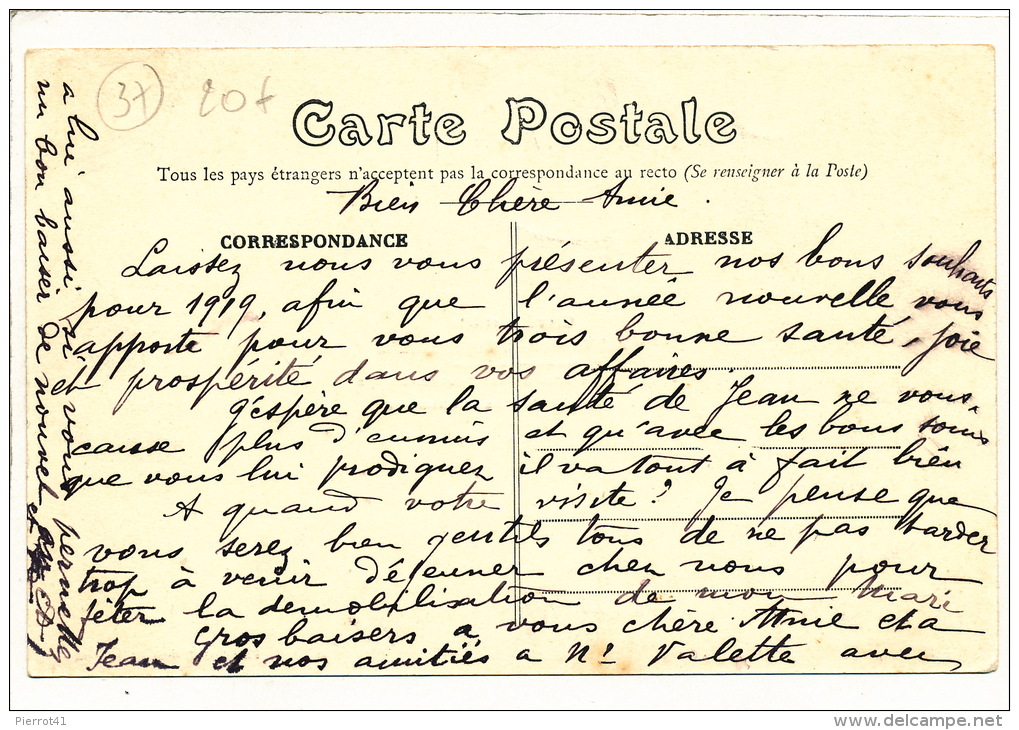 37
20f
Carte Postale
Tous les pays étrangers n'acceptent pas la correspondance au recto (Se renseigner à la Poste)
Bien Chère Amie.
CORRESPONDANCE
ADRESSE
Laissez nous vous présenter nos bons souhaits
pour 1919, afin que l'année nouvelle vous
apporte pour vous trois bonne santé, joie
et prospérité dans vos affaires.
J'espère que la santé de Jean ne vous
cause plus d'ennuis et qu'avec les bons soins
que vous lui prodiguez il va tout à fait bien
A quand votre visite? Je pense que
vous serez bien gentils tous de ne pas tarder
trop à venir déjeuner chez nous pour
fêter la demobilisation de mon mari
Gros baisers a vous chère Amie et a
Jean et nos amitiés a Mr Valette avec
un bon baiser de nouvel an
a lui aussi si vous permettez
Pierrot41
www.delcampe.net